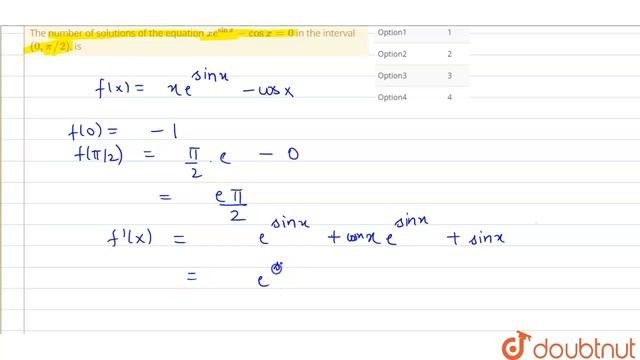 The number of solutions of the equation xe^{sin x} − cos x = 0 in the interval
(0, π/2), is
Option1 1
Option2 2
Option3 3
Option4 4
f(x) = x e^{sinx} - cosx
f(0) = -1
f(π/2) = π/2 . e - 0
= eπ/2
f'(x) = e^{sinx} + cosx e^{sinx} + sinx
= e
doubtnut